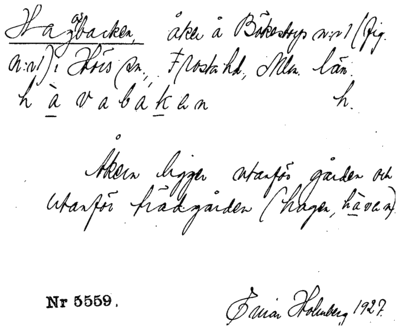 Hagbacken, åker å Bökestorp nr 1 (fig.
nr 1) i Hörs sn., Frosta hd, Mlm. län.
h à v a b a k a n h.
Åkern ligger utanför gården och
utanför trädgården (hagen, hàvan)
Nr 5559. Ewan Holmberg 1927.